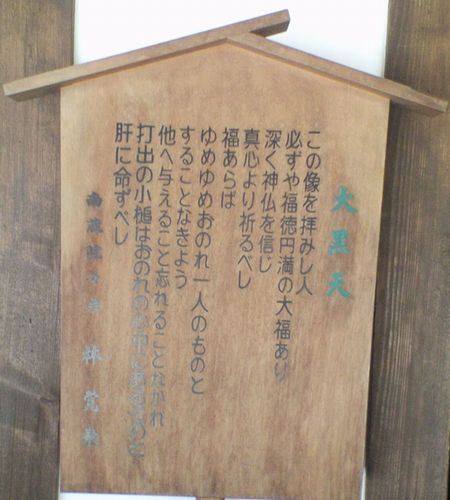 大黒天
この像を拝みし人
必ずや福徳円満の大福あり
深く神仏を信じ
真心より祈るべし
福あらば
ゆめゆめおのれ一人のものと
することなきよう
他へ与えること忘れることなかれ
打出の小槌はおのれの心中にあるものと
肝に命ずべし
南蔵院々主 林覚乗